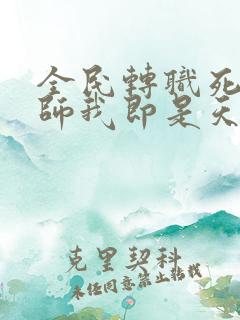 全民轉職死
師我即是天
克里契科
未任同意禁止轉載